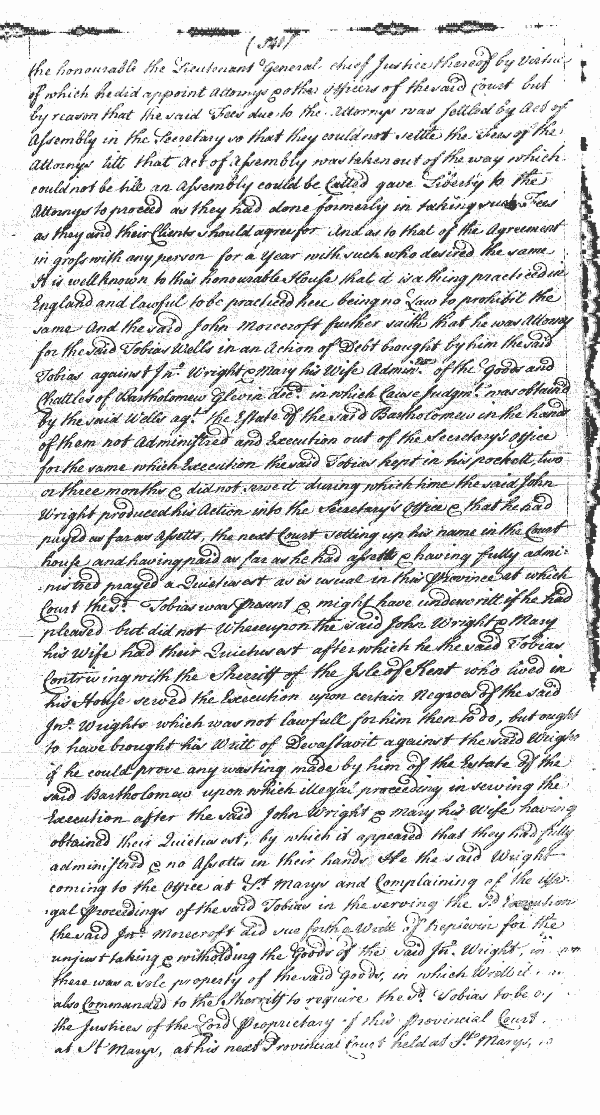 (348)
the honourable the Lieutenant General chief Justice thereof by Virtue
of which he did appoint Attornys & other officers of the said Court but
by reason that the said Fees due to the Attornys was settled by Act of
Assembly in the Secretary so that they could not settle the Fees of the
Attornys till that Act of Assembly was taken out of the way which
could not be till an Assembly could be Called gave Liberty to the
Attornys to proceed as they had done formerly in taking such Fees
as they and their Clients should agree for And as to that of the Agreement
in gross with any person for a Year with such who desired the same
It is well known to this honourable House that it is a thing practiced in
England and lawful to be practiced here being no Law to prohibit the
same And the said John Morecroft further saith that he was Attorny
for the said Tobias Wells in an Action of Debt brought by him the said
Tobias against Jno. Wright & Mary his Wife Admin.rs of the Goods and
Chattles of Bartholomew Glevin dec.d in which Cause Judgm.t was obtained
by the said Wells ag.t the Estate of the said Bartholomew in the hands
of them not Administred and Execution out of the Secretary's Office
for the same which Execution the said Tobias kept in his pockett, two
or three months & did not serve it during which time the said John
Wright produced his Action into the Secretary's Office & that he had
payed as far as Assetts, the next Court setting up his name in the Court
house and having paid as far as he had assetts & having fully admi-
-nistred prayed a Quietus est as is usual in this Province at which
Court the s.d Tobias was present & might have underwritt if he had
pleased but did not Whereupon the said John Wright & Mary
his Wife had their Quietus est after which he the said Tobias
Contriving with the Sherriff of the Isle of Kent who lived in
his House served the Execution upon certain Negroes of the said
Jno. Wrights which was not lawfull for him then to do, but ought
to have brought his Writt of Devastavit against the said Wright
if he could prove any wasting made by him of the Estate of the
said Bartholomew upon which illegal proceeding in serving the
Execution after the said John Wright & Mary his Wife having
obtained their Quietus est, by which it appeared that they had fully
administred & no Assetts in their hands He the said Wright
coming to the Office at S.t Marys and Complaining of the ille-
gal Proceedings of the said Tobias in the serving the s.d Execution
the said Jno. Morecroft did sue forth a Writt of Replevin for the
unjust taking & witholding the Goods of the said Jno. Wright,
there was a sole property of the said Goods, in which Writt
also Commanded to the Sherriff to require the s.d Tobias to be
the Justices of the Lord Proprietary of this Provincial Court
at S.t Marys, at his next Provincial Court held at S.t Marys,